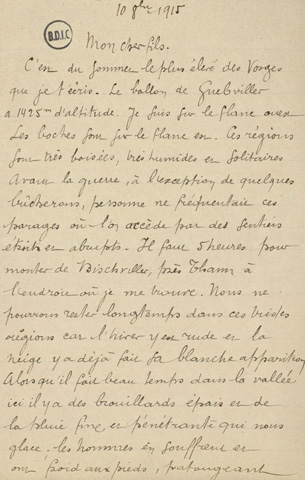 10 8bre 1915
B.D.I.C
Mon cher fils.
C'est du sommet le plus élevé des Vosges
que je t'écris. Le ballon de Guebviller
a 1425m d'altitude. Je suis sur le flanc ouest
Les boches sont sur le flanc est. Ces régions
sont très boisées, très humides et solitaires
Avant la guerre, à l'exception de quelques
bûcherons, personne ne fréquentait ces
parages où l'on accède par des sentiers
étroits et abrupts. Il faut 5 heures pour
monter de Bischviller, près Thann, à
l'endroit où je me trouve. Nous ne
pourrons rester longtemps dans ces tristes
régions car l'hiver y est rude et la
neige y a déjà fait sa blanche apparition
Alors qu'il fait beau temps dans la vallée
ici il y a des brouillards épais et de
la pluie fine et pénétrante qui nous
glace. les hommes en souffrent et
ont froid aux pieds, pataugeant